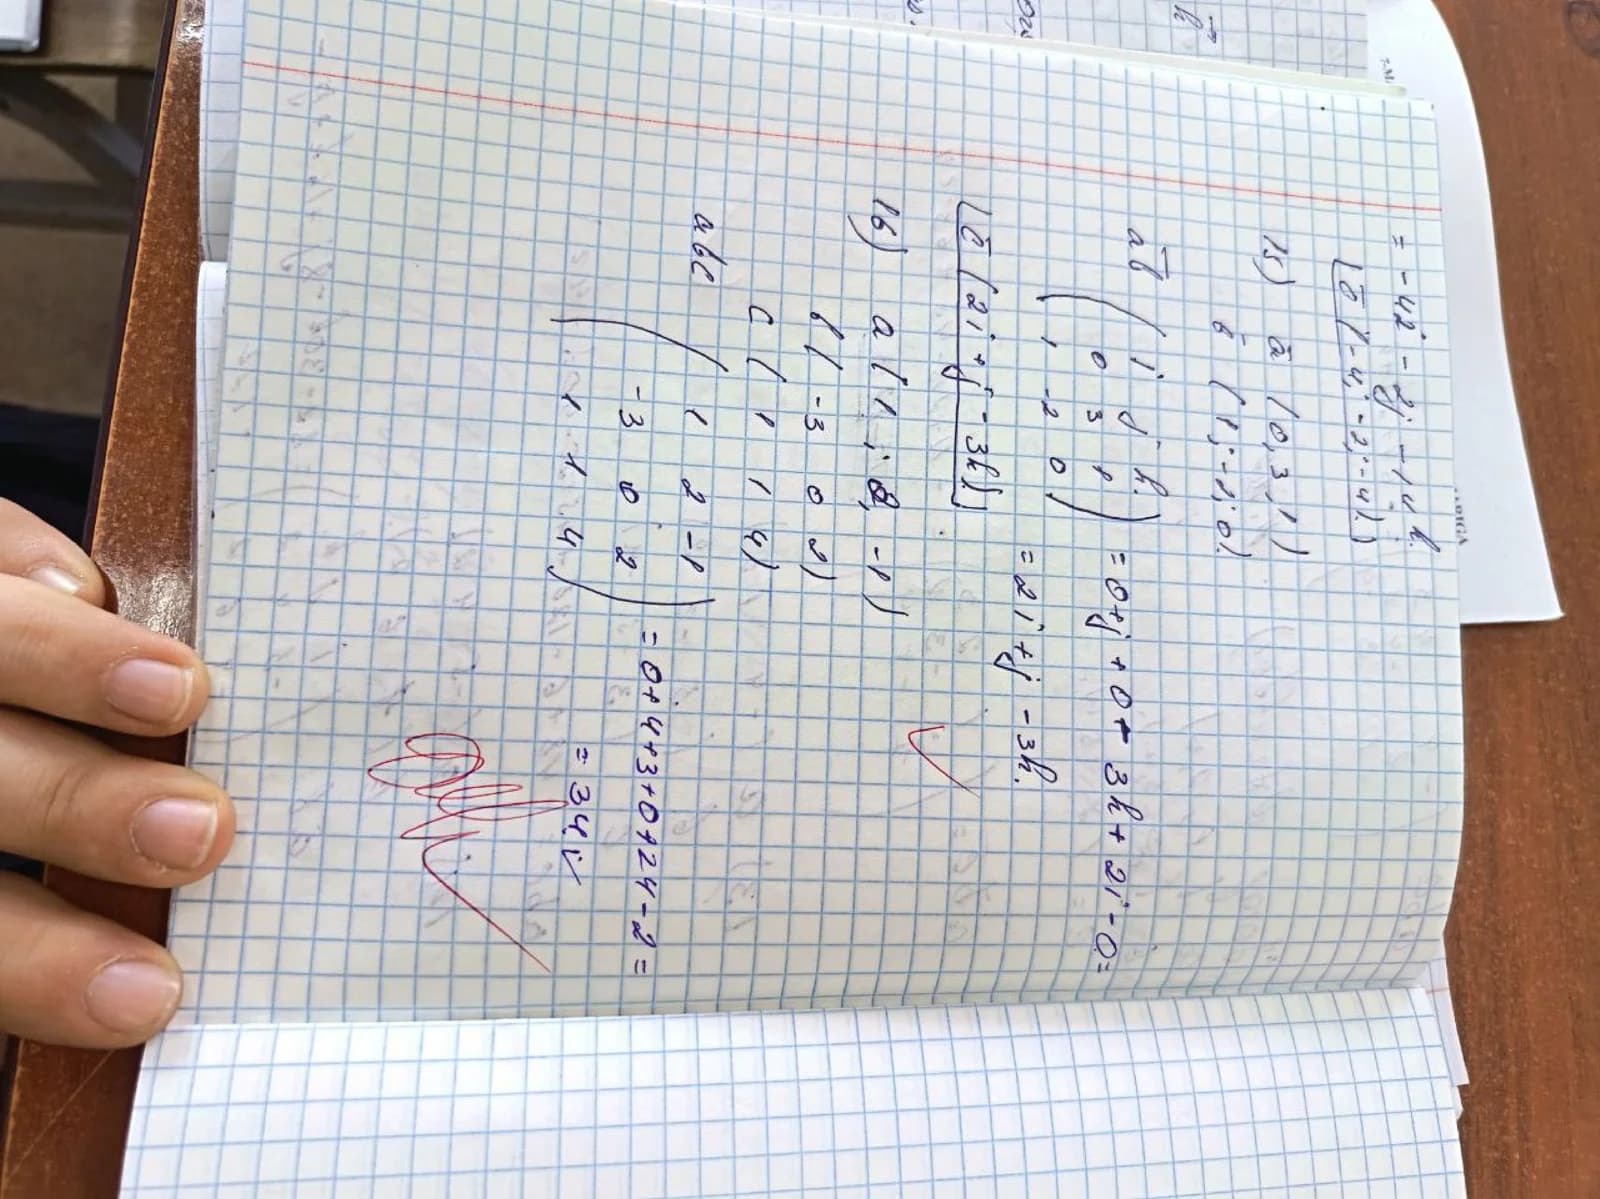 = - 4i - 2j - 14k.
|ō (-4; -2; -4)
15) ā (0, 3, 1)
в̄ (1; -2; 0).
āв̄
( i j k.
0 3 1
1 -2 0 ) = 0+j+0-3k+2i-0=
= 2i+j-3k.
|ō (2i+j-3k)|
16) a (1; 2, -1)
в( -3 0 2)
c ( 1 1 4)
abc
( 1 2 -1
-3 0 2
1 1 4 ) = 0+4+3+0+24-2=
= 34